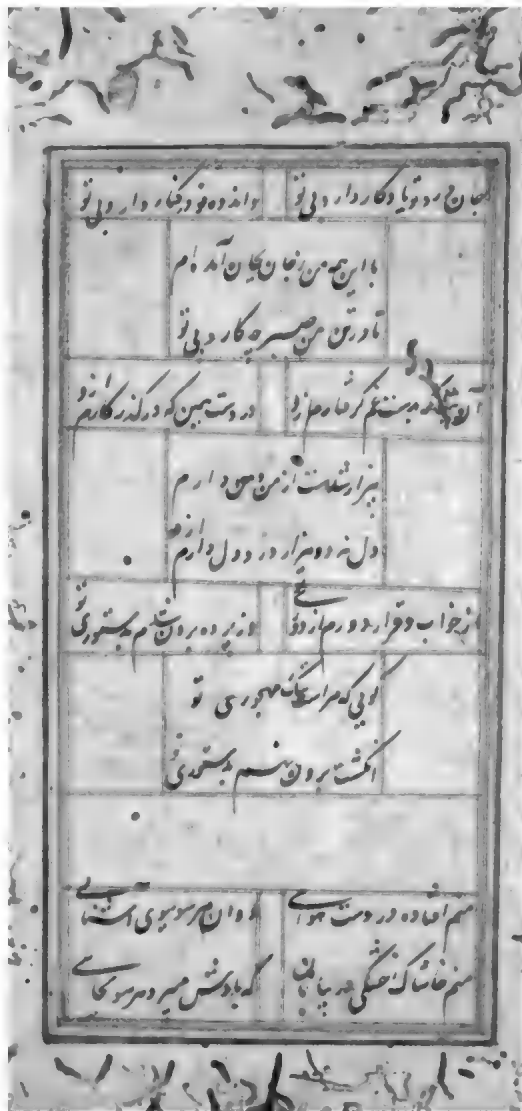 جان درد تو یادگار دارد بی تو
واندوه تو در کنار دارد بی تو
با این همه من ز جان بجان آمده‌ام
تا در تن من صبر چه کار دارد بی تو
که بدست غم گرفتارم ازو
در دست همین که در گذر کارم ازو
بیزار شدست از من و من دارم
دل نه و هزار درد دل دارم ازو
از خواب و قرار دورم از دوری تو
وز پرده برون شدم بدستوری تو
گویی که مراست برگ مهجوری تو
انگشت برون نهم بدستوری تو
منم افتاده در دست هوایی
دوان هر سو ببوی آشنایی
منم خاشاک خشکی در بیابان
که بادش میبرد هر سو بجایی